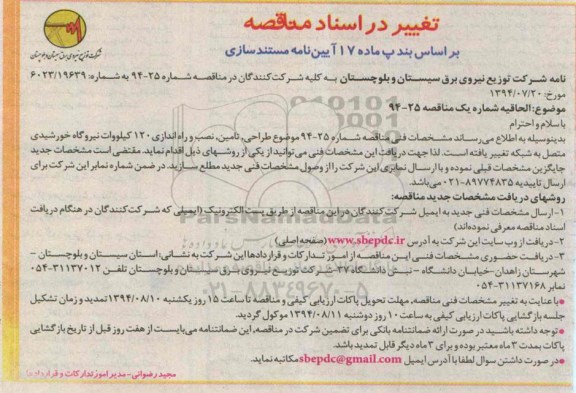 تغییر در اسناد مناقصه
بر اساس بند پ ماده ۱۷ آیین‌نامه مستندسازی
شرکت توزیع نیروی برق سیستان و بلوچستان
نامه شرکت توزیع نیروی برق سیستان و بلوچستان به کلیه شرکت‌کنندگان در مناقصه شماره ۲۵-۹۴ به شماره: ۶۰۲۳/۱۹۶۳۹
مورخ: ۱۳۹۴/۰۷/۲۰
موضوع: الحاقیه شماره یک مناقصه ۲۵-۹۴
با سلام و احترام
بدینوسیله به اطلاع می‌رساند مشخصات فنی مناقصه شماره ۲۵-۹۴ موضوع طراحی، تامین، نصب و راه‌اندازی ۱۲۰ کیلووات نیروگاه خورشیدی
متصل به شبکه تغییر یافته است. لذا جهت دریافت این مشخصات فنی می‌توانید از یکی از روشهای ذیل اقدام نماید. مقتضی است مشخصات جدید
جایگزین مشخصات قبلی نموده و با ارسال نمابری این شرکت را از وصول مشخصات فنی جدید مطلع سازید. در ضمن شماره نمابر این شرکت برای
ارسال تاییدیه ۸۹۷۷۴۸۳۵-۰۲۱ می‌باشد.
روشهای دریافت مشخصات جدید مناقصه:
۱- ارسال مشخصات فنی جدید به ایمیل شرکت‌کنندگان در این مناقصه از طریق پست الکترونیک (ایمیلی که شرکت‌کنندگان در هنگام دریافت
اسناد مناقصه معرفی نموده‌اند)
۲- دریافت از وب سایت این شرکت به آدرس www.sbepdc.ir (صفحه اصلی)
۳- دریافت حضوری مشخصات فنی این مناقصه از امور تدارکات و قراردادها این شرکت به نشانی: استان سیستان و بلوچستان -
شهرستان زاهدان - خیابان دانشگاه - نبش دانشگاه ۳۷ - شرکت توزیع نیروی برق سیستان و بلوچستان تلفن ۳۱۱۳۷۰۱۲-۰۵۴
نمابر ۳۱۱۳۷۱۶۸-۰۵۴
● با عنایت به تغییر مشخصات فنی مناقصه، مهلت تحویل پاکات ارزیابی کیفی و مناقصه تا ساعت ۱۵ روز یکشنبه ۱۳۹۴/۰۸/۱۰ تمدید و زمان تشکیل
جلسه بازگشایی پاکات ارزیابی کیفی به ساعت ۱۰ روز دوشنبه ۱۳۹۴/۰۸/۱۱ موکول گردید.
● توجه داشته باشید در صورت ارائه ضمانتنامه بانکی برای تضمین شرکت در مناقصه، این ضمانتنامه می‌بایست از هفت روز قبل از تاریخ بازگشایی
پاکات بمدت ۳ ماه معتبر بوده و برای ۳ ماه دیگر قابل تمدید باشد.
● در صورت داشتن سوال لطفا با آدرس ایمیل sbepdc@gmail.com مکاتبه نماید.
مجید رضوانی - مدیر امور تدارکات و قراردادها
ParsNamadData
۰۲۱-۸۸۳۴۹۶۷۰-۵